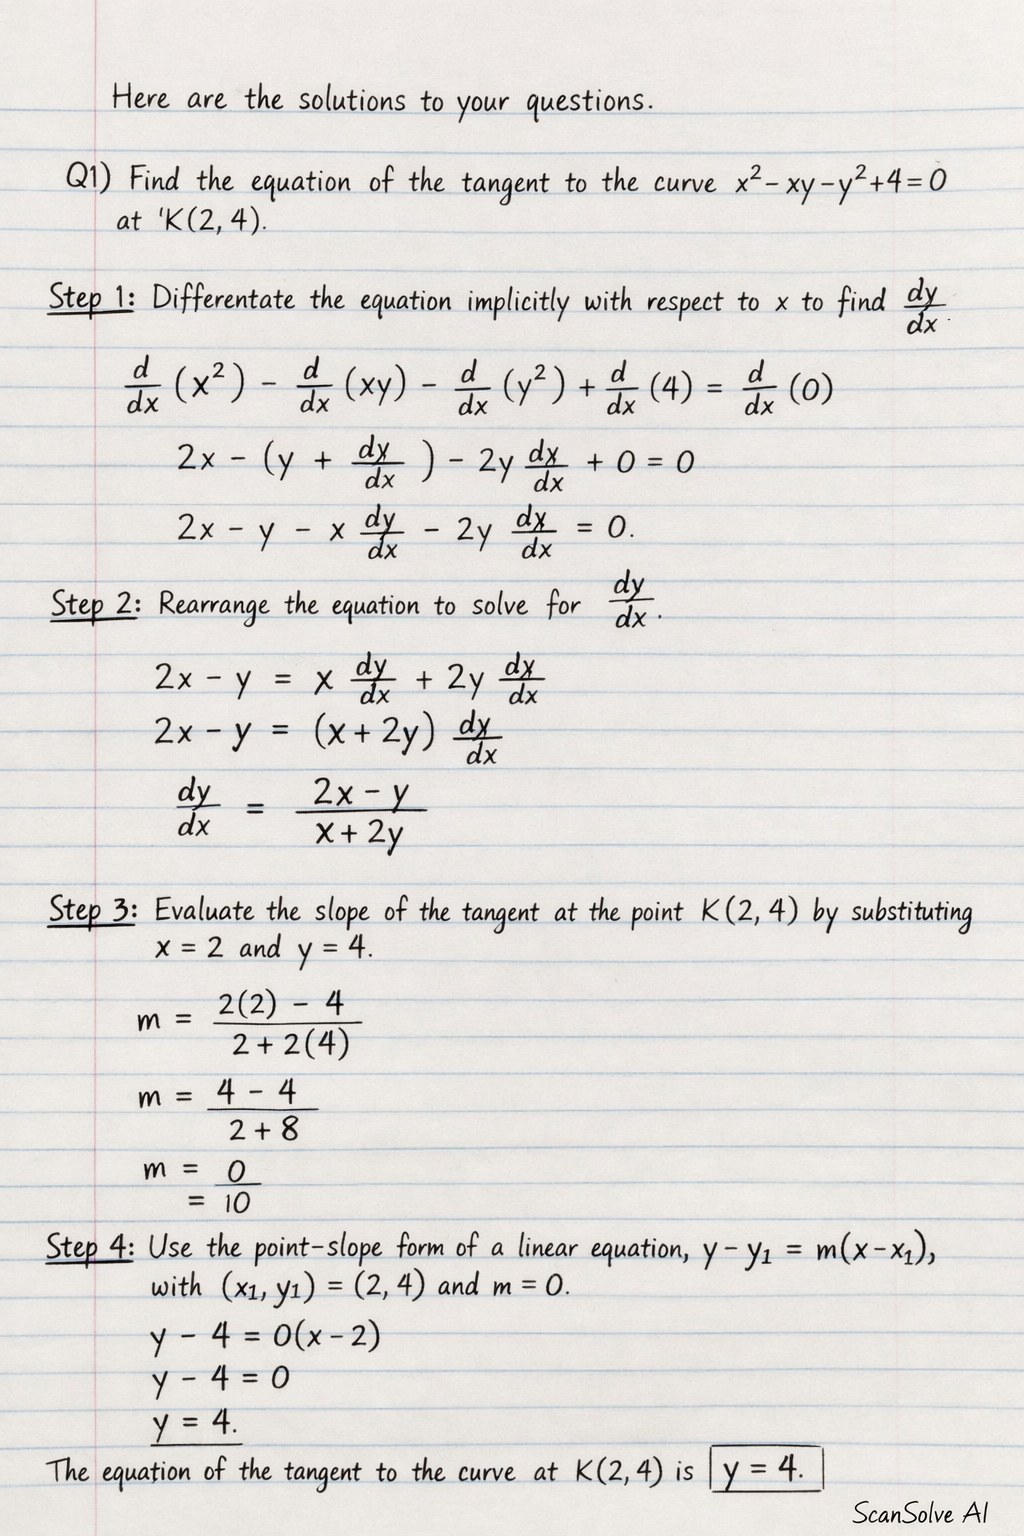 Here are the solutions to your questions.
Q1) Find the equation of the tangent to the curve x² - xy - y² + 4 = 0
at 'K(2, 4).
Step 1: Differentate the equation implicitly with respect to x to find dy/dx.
d/dx (x²) - d/dx (xy) - d/dx (y²) + d/dx (4) = d/dx (0)
2x - (y + dy/dx ) - 2y dy/dx + 0 = 0
2x - y - x dy/dx - 2y dy/dx = 0.
Step 2: Rearrange the equation to solve for dy/dx.
2x - y = x dy/dx + 2y dy/dx
2x - y = (x + 2y) dy/dx
dy/dx = (2x - y)/(x + 2y)
Step 3: Evaluate the slope of the tangent at the point K(2, 4) by substituting
x = 2 and y = 4.
m = (2(2) - 4)/(2 + 2(4))
m = (4 - 4)/(2 + 8)
m = 0
= 10
Step 4: Use the point-slope form of a linear equation, y - y₁ = m(x - x₁),
with (x₁, y₁) = (2, 4) and m = 0.
y - 4 = 0(x - 2)
y - 4 = 0
y = 4.
The equation of the tangent to the curve at K(2, 4) is y = 4.
ScanSolve AI